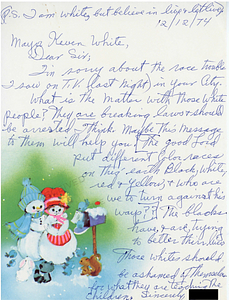 P.S. I am white, but believe in live & let live.
12/12/74
Mayor Keven White,
Dear Sir,
I'm sorry about the race trouble
I saw on T.V. (last Night) in your City.
What is the Matter with those White
people? They are breaking laws & should
be arrested I think. Maybe this message
to them will help you. The good Lord
put different color races
on this earth Black, White,
red & Yellow, & who are
we to turn against his
way? The blacks
have, & are, trying
to better themselves
Those white should
be ashamed of themselves
for what they are teaching the
Children. Sincerely,